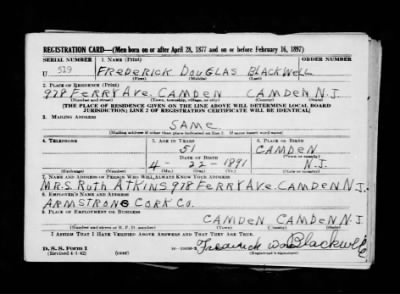 REGISTRATION CARD—(Men born on or after April 28, 1877 and on or before February 16, 1897)
SERIAL NUMBER 1. NAME (Print) ORDER NUMBER
U 529 FREDERICK DOUGLAS BLACKWELL
(First) (Middle) (Last)
2. PLACE OF RESIDENCE (Print)
978 FERRY AVE. CAMDEN CAMDEN N.J.
(Number and street) (Town, township, village, or city) (County) (State)
[THE PLACE OF RESIDENCE GIVEN ON THE LINE ABOVE WILL DETERMINE LOCAL BOARD
JURISDICTION; LINE 2 OF REGISTRATION CERTIFICATE WILL BE IDENTICAL]
3. MAILING ADDRESS
SAME
[Mailing address if other than place indicated on line 2. If same insert word same]
4. TELEPHONE 5. AGE IN YEARS 6. PLACE OF BIRTH
51 CAMDEN
DATE OF BIRTH (Town or county)
4-22-1891 N.J.
(Exchange) (Number) (Mo.) (Day) (Yr.) (State or country)
7. NAME AND ADDRESS OF PERSON WHO WILL ALWAYS KNOW YOUR ADDRESS
MRS. RUTH ATKINS 978 FERRY AVE. CAMDEN N.J.
8. EMPLOYER'S NAME AND ADDRESS
ARMSTRONG CORK CO.
9. PLACE OF EMPLOYMENT OR BUSINESS
CAMDEN CAMDEN N.J.
(Number and street or R. F. D. number) (Town) (County) (State)
I AFFIRM THAT I HAVE VERIFIED ABOVE ANSWERS AND THAT THEY ARE TRUE.
D. S. S. Form 1
(Revised 4-1-42) Frederick D. Blackwell